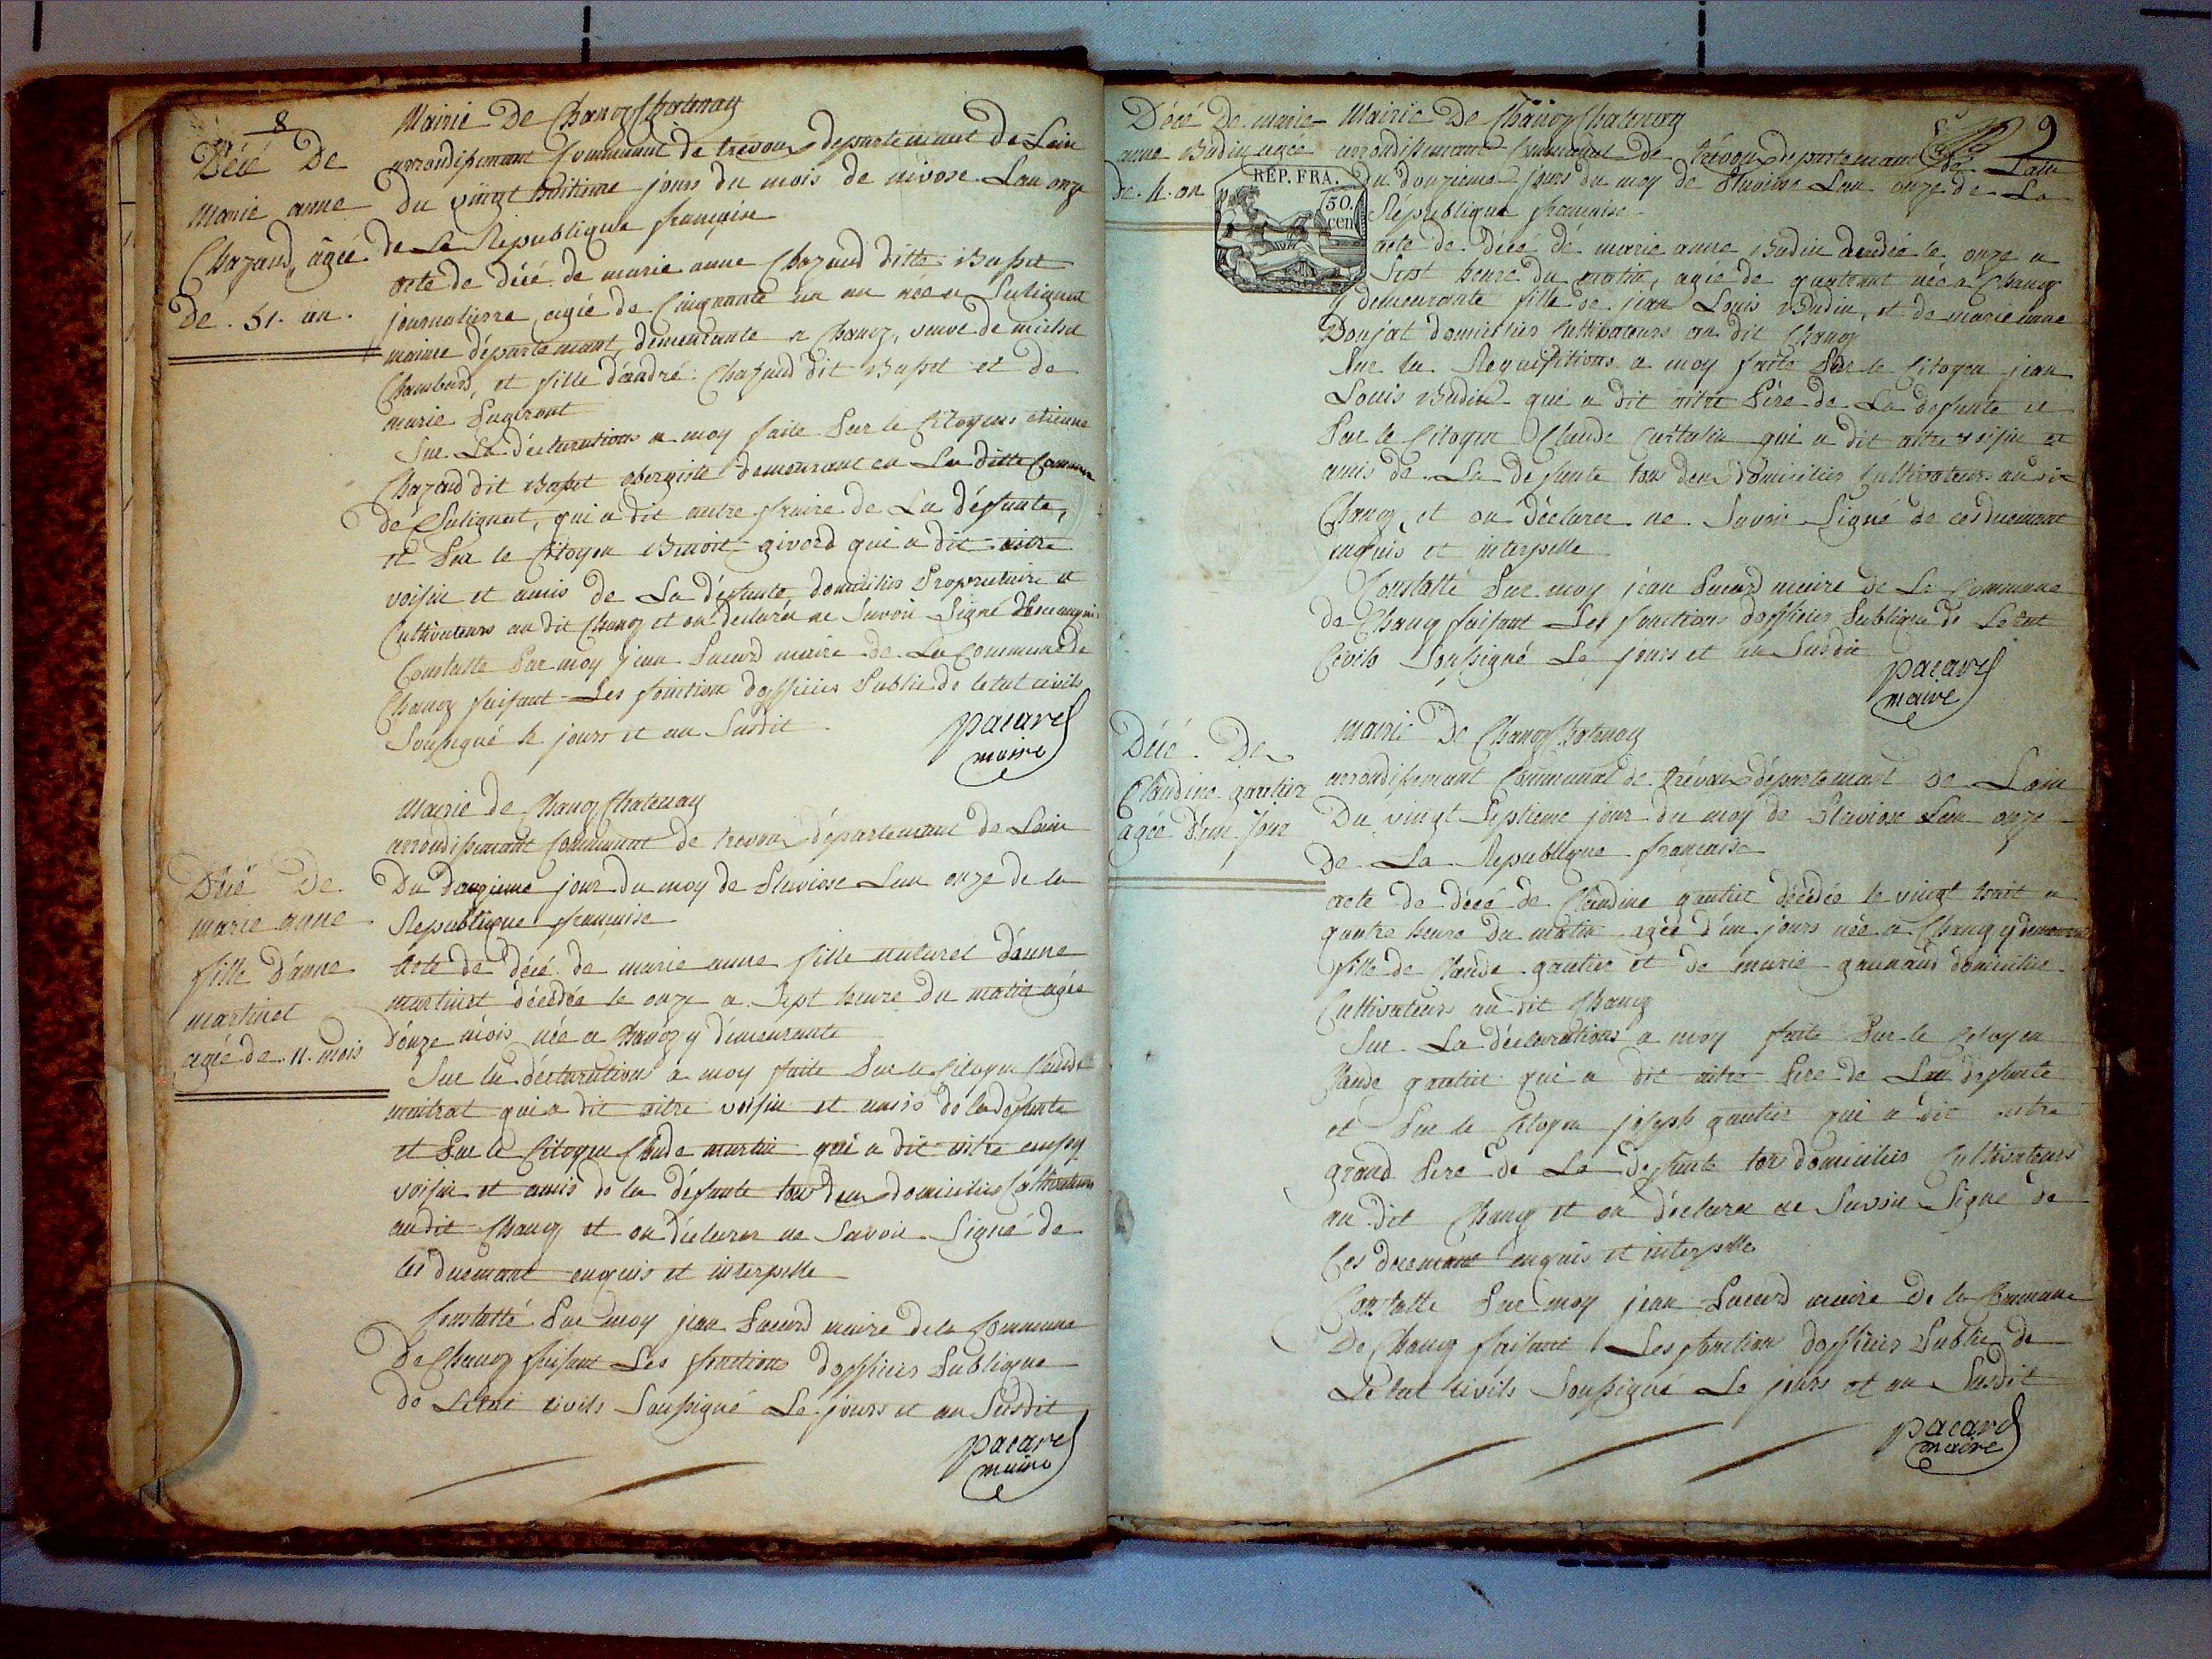 8
Décé De
Marie anne
Chazaud, agée
de . 51 . an .
Mairie De Chanoz Chatenay
arrondissemant Communant de trevoux departemant de Lain
du vingt huitieme jours du mois de nivose Lan onze
de La Republique française
acte de décé de marie anne Chazaud ditte Basset
journalierre, agié de Cinqrante un an née a Sulignat
maime départemant, demeurante a Chanoz, veuve de michel
Chambard, et fille d'andré Chazaud dit Basset et de
marie
Sur La déclarations a moy faite Par le Citoyens etienne
Chazaud dit Basset obergiste demeurant en La ditte Commune
de Sulignat, qui a dit aitre fraire de La déffunte,
et Par le Citoyen Benoit givord qui a dit aitre
voisin et amis de La déffunte, domiciliés Propriétaire et
Cultivateurs au dit Chanoz et on declarée ne Savoir Signé de ce enquis
Constatté Par moy jean Pacard maire de La Commune de
Chanoz faisant Les fonction dofficier Public de letat civils
Soussigné le jours et an Susdit
pacard
maire
Décé De
marie anne
fille d'anne
martinet
agée de . 11 . mois
Mairie de Chanoz Chatenay
arrondissemant Communant de trevoux département de Lain
Du douzieme jour du moy de Pluviose Lan onze de la
Republique française
Acte de décé de marie anne fille naturel d'anne
martinet décédée le onze a Sept heure du matin agée
d'onze mois née a Chanoz y demeurante
Sur la déclarations a moy faite Par le Citoyen Claude
mitrat qui a dit aitre voisin et amis de la deffunte
et Par le Citoyen Claude martin qui a dit aitre aussy
voisin et amis de la déffunte tous deux domiciliés Cultivateurs
au dit Chanoz et on déclarer ne Savoir Signé de
ces duemant enquis et interpelle
Constatté Par moy jean Pacard maire de la Commune
De Chanoz faisant Les fonctions d'officier Publique
de Letat civils Soussigné Le jours et an Susdit
pacard
maire
9
Décé De marie
anne Budin agée
de . 4 . an
REP. FRA.
50.
cen
Mairie De Chanoz Chatenay
arrondissemant Communal de trévoux departemant de Lain
du douzieme jours du moy de Pluviose Lan onze de La
République française
acte de décé de marie anne Budin décédée le onze a
Sept heure du matin, agée de quatreant née a Chanoz
y demeurante fille de jean Louis Budin, et de marie anne
Donjat domiciliés Cultivateurs au dit Chanoz
Sur la Requisitions a moy faite Par le Citoyen jean
Louis Budin qui a dit aitre Père de La deffunte et
Par le Citoyen Claude qui a dit aitre voisin et
amis de La deffunte tous deux domiciliés Cultivateurs au dit
Chanoz, et on déclarer ne Savoir Signé de ces duemant
enquis et interpelle
Constatté Par moy jean Pacard maire de La Commune
de Chanoz faisant Les fonctions dofficier Publique de Letat
Civils Soussigné Le jours et an Susdit
pacard
maire
Décé De
Claudine gautier
agée d'un jour
Mairie De Chanoz Chatenay
arrondissemant Communal de trévoux département de Lain
Du vingt Septieme jour du moy de Pluviose Lan onze
de La Republique francaise
acte de décé de Claudine gautier décédée le vingt huit a
quatre heure du matin agée d'un jours née a Chanoz y demeurante
fille de Claude gautier et de marie domicilié
Cultivateurs au dit Chanoz
Sur La déclarations a moy faite Par le Citoyen
Claude gautier qui a dit aitre Père de La deffunte
et Par le Citoyen joseph gautier qui a dit aitre
grand Père de La deffunte tous domiciliés Cultivateurs
au dit Chanoz et on déclaré ne Savoir Signé de
Ces duemant enquis et interpelle
Constatte Par moy jean Pacard maire de la Commune
De Chanoz faisant Les fonction dofficier Public de
Letat civils Soussigné Le jours et an Susdit
pacard
maire